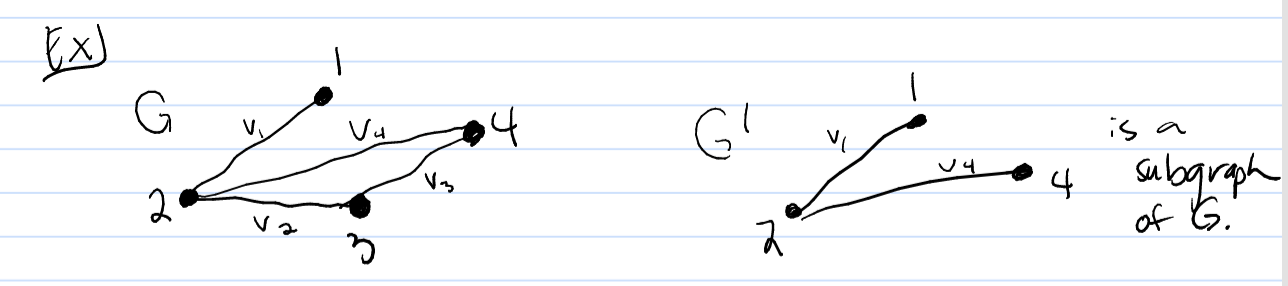 Ex)
G
1
v₁
v₄
4
v₃
2
v₂
3
G'
1
v₁
v₄
4
2
is a
subgraph
of G.